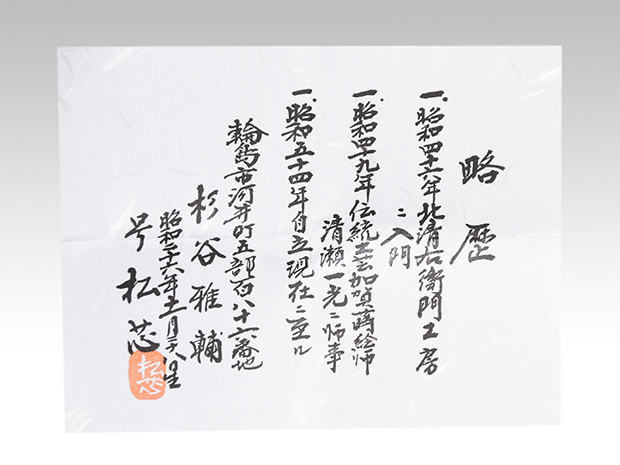 略歴
一、昭和四十六年北清右衛門工房
ニ入門
一、昭和四十九年伝統工芸加賀蒔絵師
清瀬一光ニ師事
一、昭和五十四年自立現在ニ至ル
輪島市河井町五部百八十六番地
杉谷雅輔
昭和二十六年十一月二十八日生
号松芯
松芯